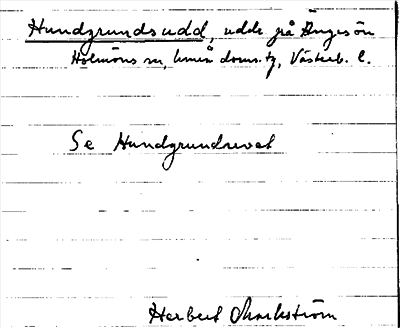 Hundgrundsudd, udde på Ängesön
Holmöns sn, Umeå doms. tg, Västerb. l.
Se Hundgrundrevet
Herbert Markström